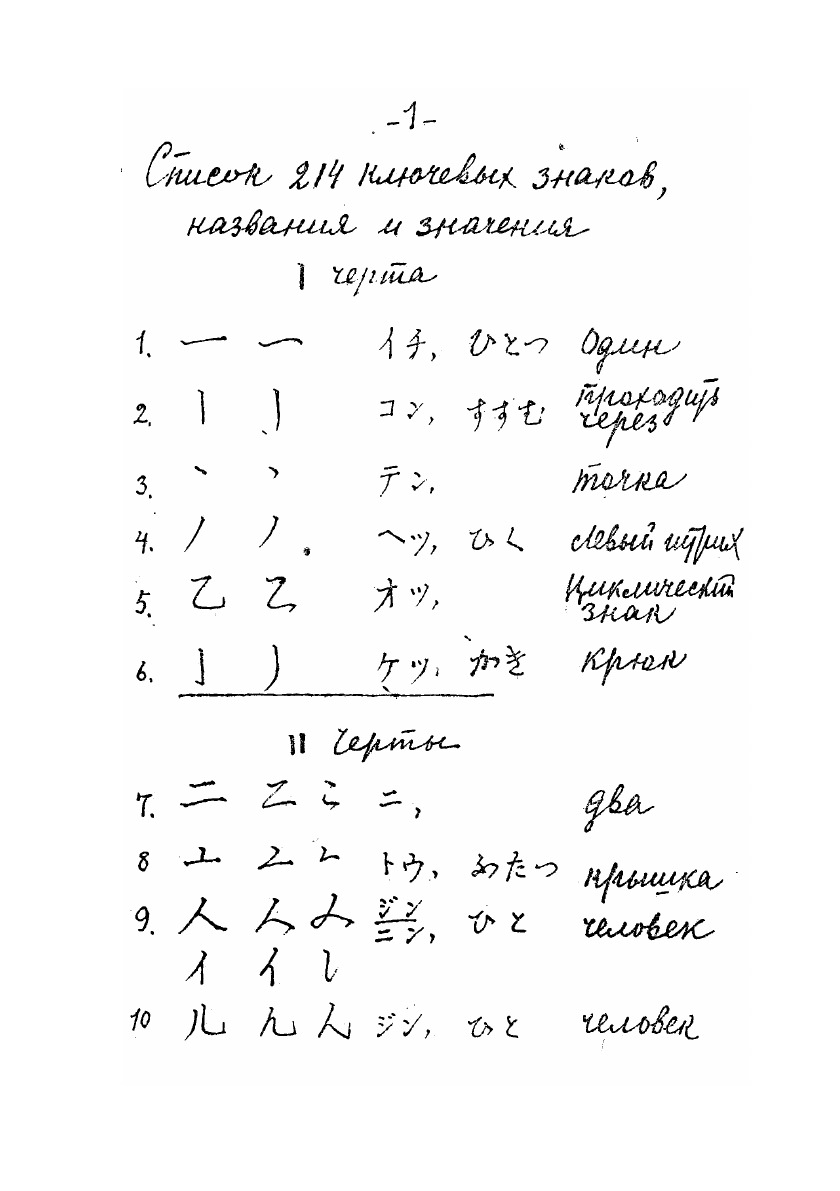 -1-
Список 214 ключевых знаков,
названия и значения
I черта
1. 一 一 イチ, ひとつ Один
2. 丨 亅 コン, すすむ проходить через
3. 丶 丶 テン, точка
4. 丿 丿 ヘツ, ひく левый штрих
5. 乙 乙 オツ, Циклический знак
6. 亅 亅 ケツ, かぎ крюк
II Черты
7. 二 二 こ ニ, два
8 亠 亠 亠 トウ, ふたつ крышка
9. 人 人 人 ジン ニン, ひと человек
亻 亻 亻
10 儿 儿 儿 ジン, ひと человек